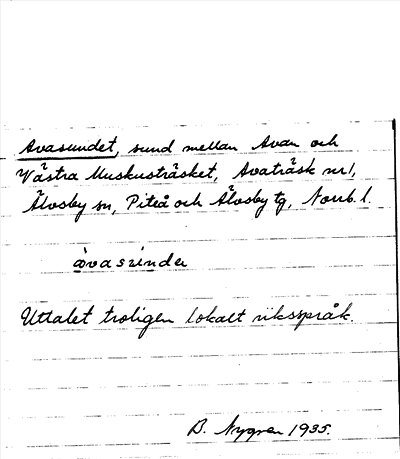 Avasundet, sund mellan Avan och
Västra Muskusträsket, Avaträsk nr 1,
Älvsby sn, Piteå och Älvsby tg, Norrb. l.
àvasuindər
Uttalet troligen lokalt riksspråk.
B. Nygren 1935.